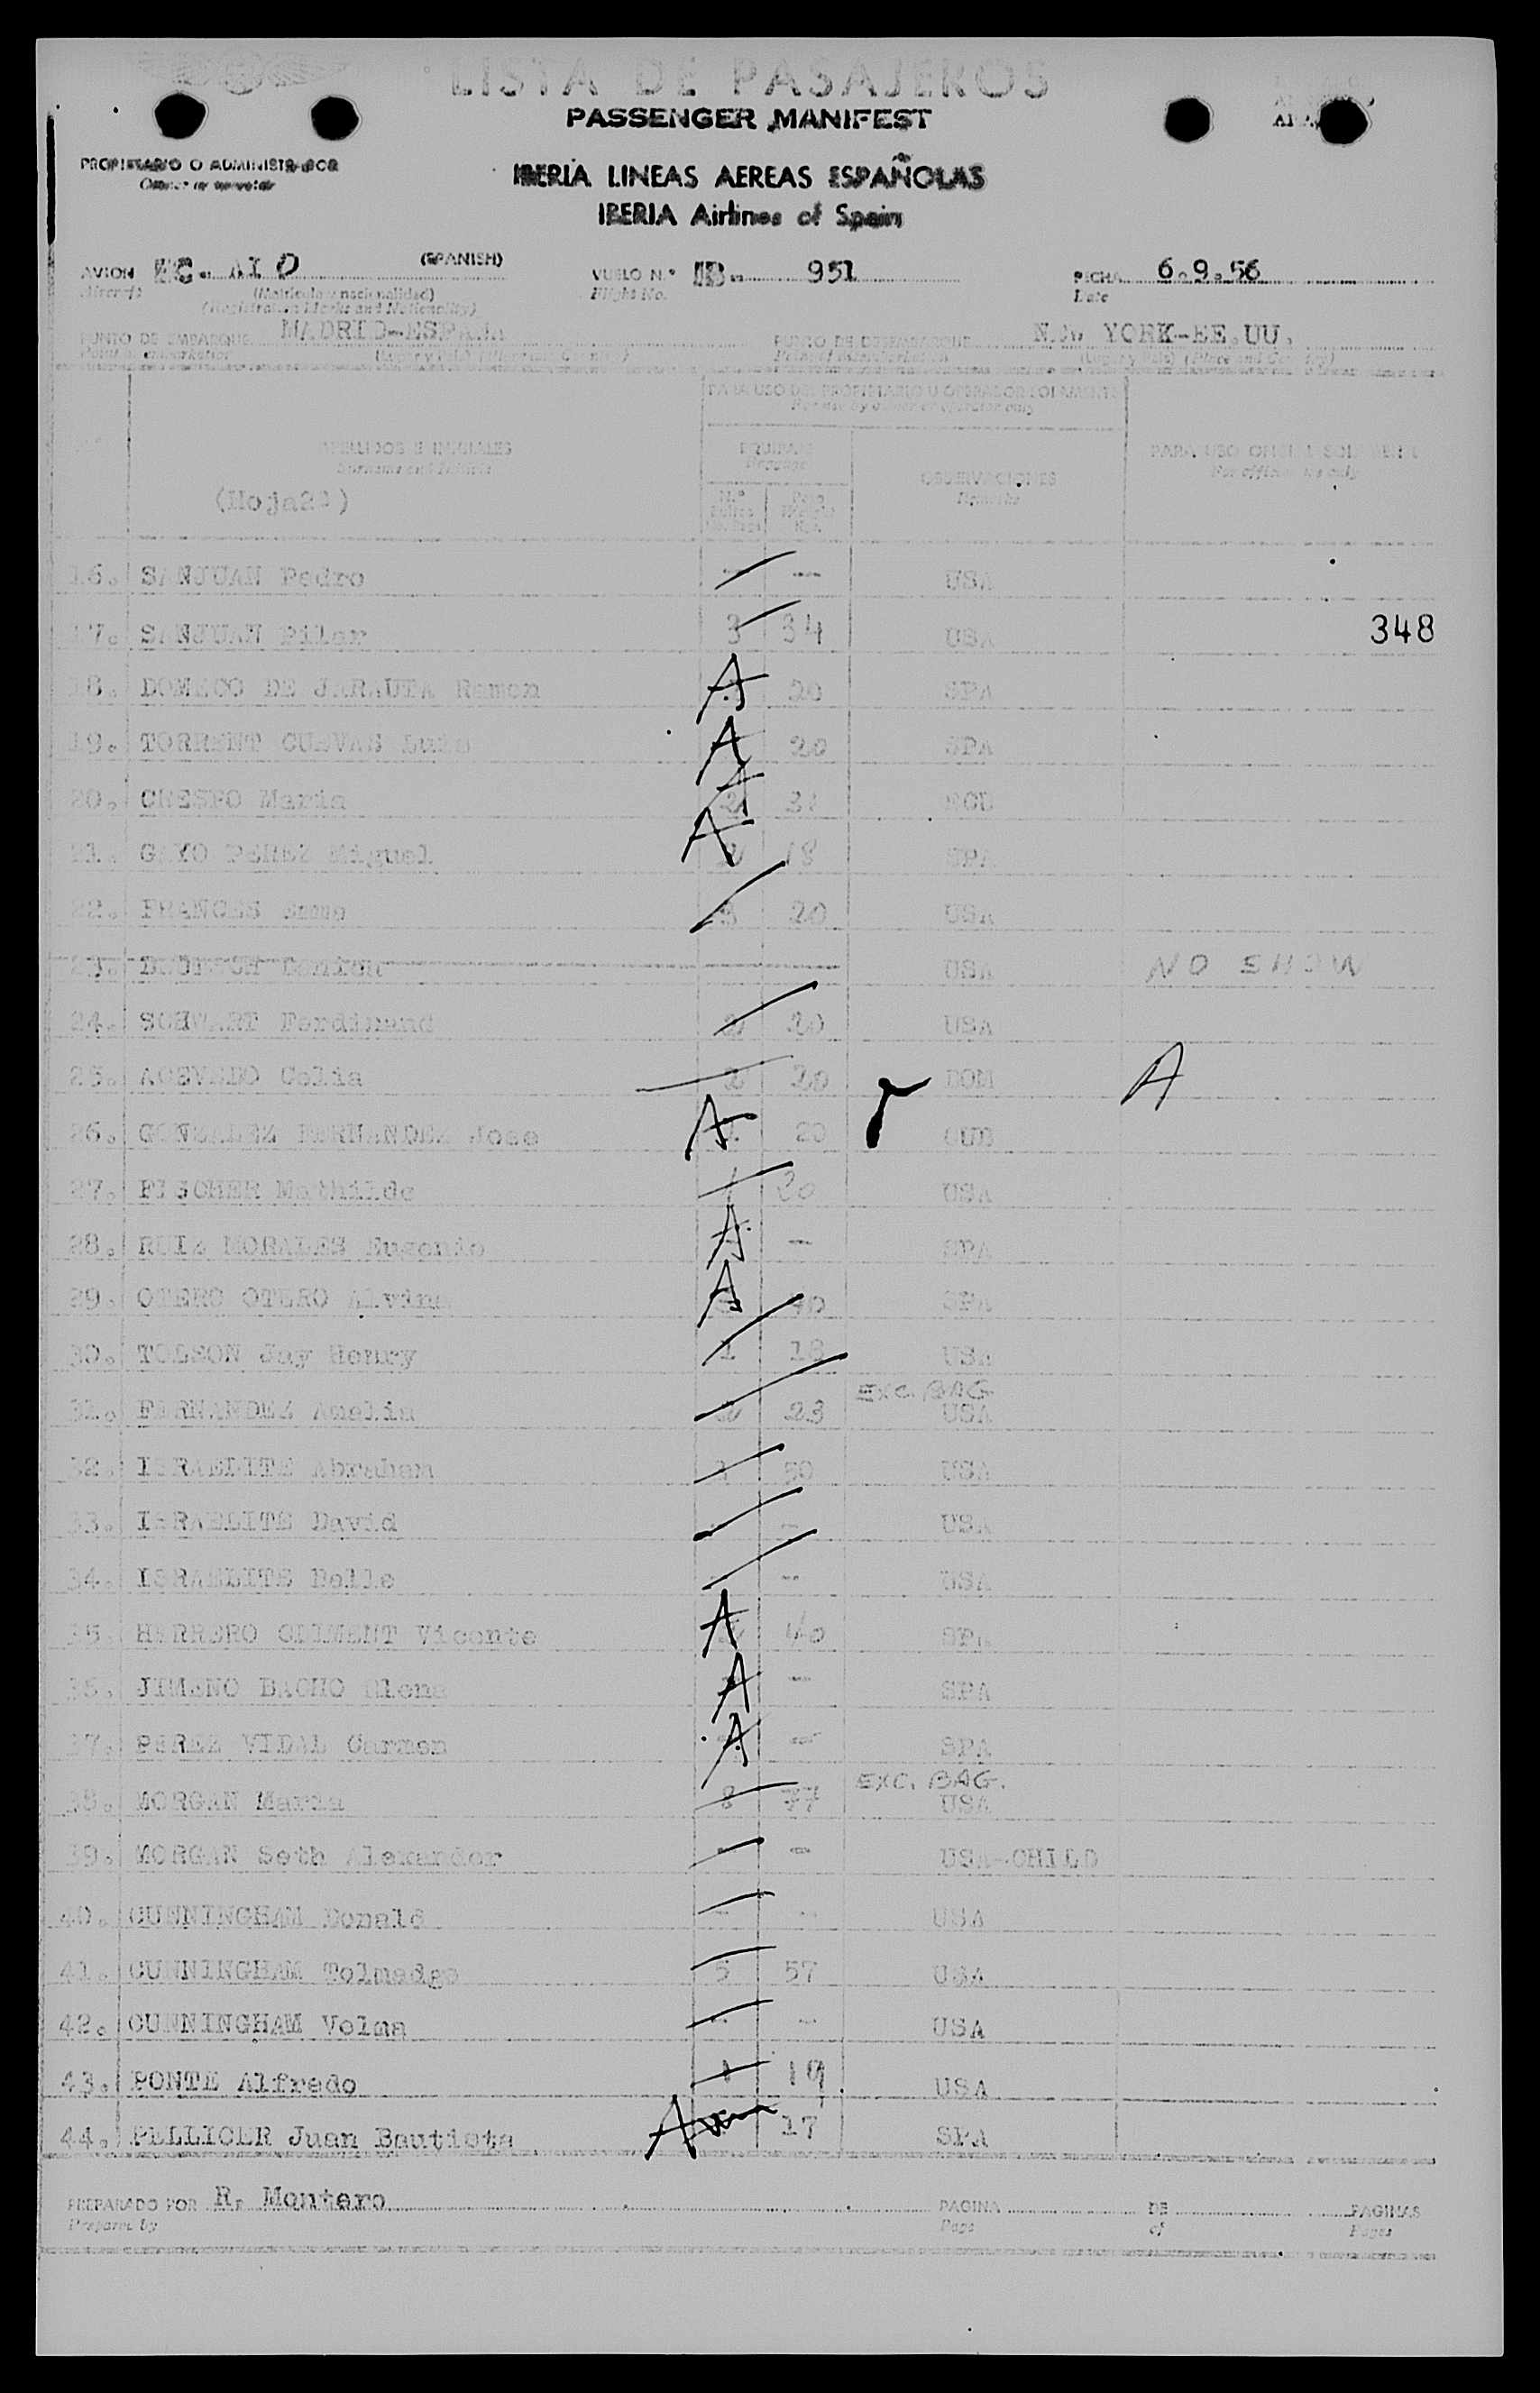 LISTA DE PASAJEROS
PASSENGER MANIFEST
PROPIETARIO O ADMINISTRADOR
Owner or operator
IBERIA LINEAS AEREAS ESPAÑOLAS
IBERIA Airlines of Spain
AVION EC. AIO (SPANISH) VUELO N.º IB. 951 FECHA 6.9.56
Aircraft (Matricula y nacionalidad) Flight No. Date
(Registration Marks and Nationality)
PUNTO DE EMBARQUE MADRID-ESPAÑA PUNTO DE DESEMBARQUE YORK-EE.UU.
Point of embarkation (Lugar y País) (Place and Country)
PARA USO DEL PROPIETARIO U OPERADOR SOLAMENTE
For use by owner or operator only
APELLIDOS E INICIALES EQUIPAJE PARA USO OFICIAL SOLAMENTE
Surname and Initials Baggage OBSERVACIONES For official use only
Remarks
(Hoja2ª)
16. SANJUAN Pedro - - USA
17. SANJUAN Pilar 3 34 USA 348
18. DOMECO DE JARAUTA Ramon A 20 SPA
19. TORRENT CUEVAS Luis A 20 SPA
20. CRESPO Maria A 2 ECU
21. GAYO PEREZ Miguel A 2 18 SPA
22. FRANCES 3 20 USA
23. USA NO SHOW
24. SCHWART Ferdinand 2 20 USA
25. ACEVEDO Celia 2 20 DOM A
26. GONZALEZ FERNANDEZ Jose A 20 CUB
27. FISCHER Mathilde 1 20 USA
28. RUIZ MORALES Eugenio A - SPA
29. OTERO OTERO A 40 SPA
30. TOLSON Jay Henry 1 18 USA
EXC. BAG
31. FERNANDEZ Amelia 2 23 USA
32. ISRAELITE Abraham 50 USA
33. ISRAELITE David - USA
34. ISRAELITE Belle - USA
35. HERRERO CLIMENT Vicente A 40 SPA
36. JIMENO BACHO Elena A - SPA
37. PEREZ VIDAL Carmen A - SPA
EXC. BAG.
38. MORGAN Maria 8 77 USA
39. MORGAN Seth Alexander - - USA-CHILD
40. CUNNINGHAM Donald - - USA
41. CUNNINGHAM Tolmadge 5 57 USA
42. CUNNINGHAM Velma - - USA
43. PONTE Alfredo 1 19 USA
44. PELLICER Juan Bautista A 17 SPA
PREPARADO POR R. Montero PAGINA DE PAGINAS
Prepared by Page of Pages